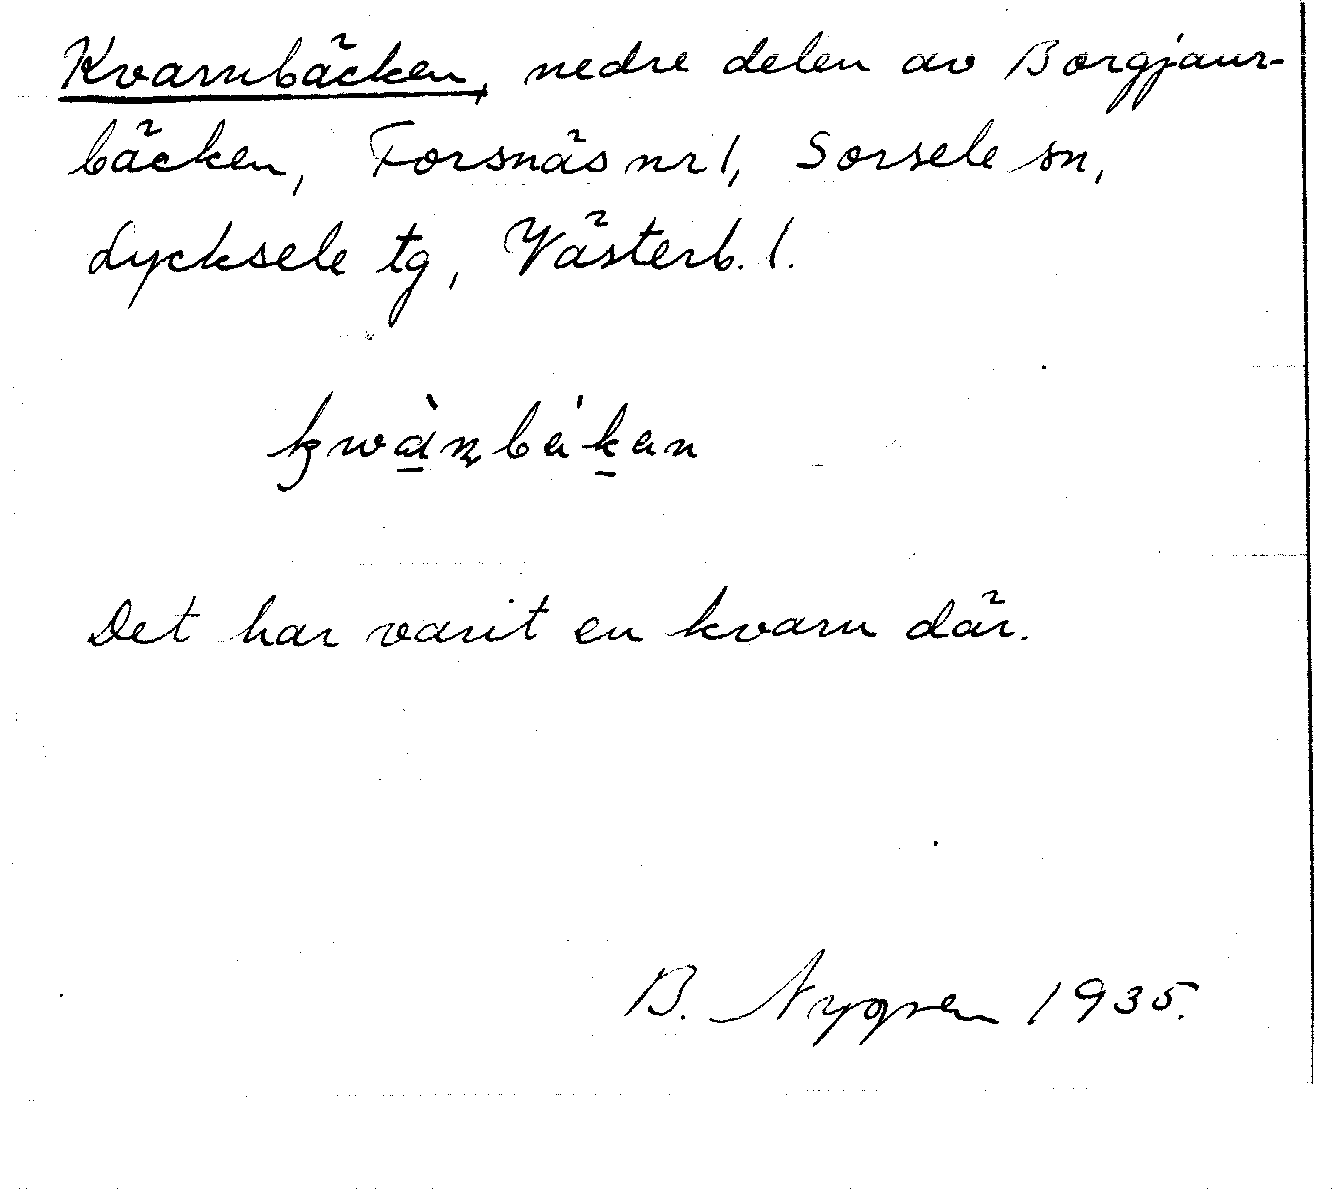 Kvarnbäcken, nedre delen av Borgjaur-
bäcken, Forsnäs nr 1, Sorsele sn,
Lycksele tg, Västerb. l.
kwànbákan
Det har varit en kvarn där.
B. Nygren 1935.